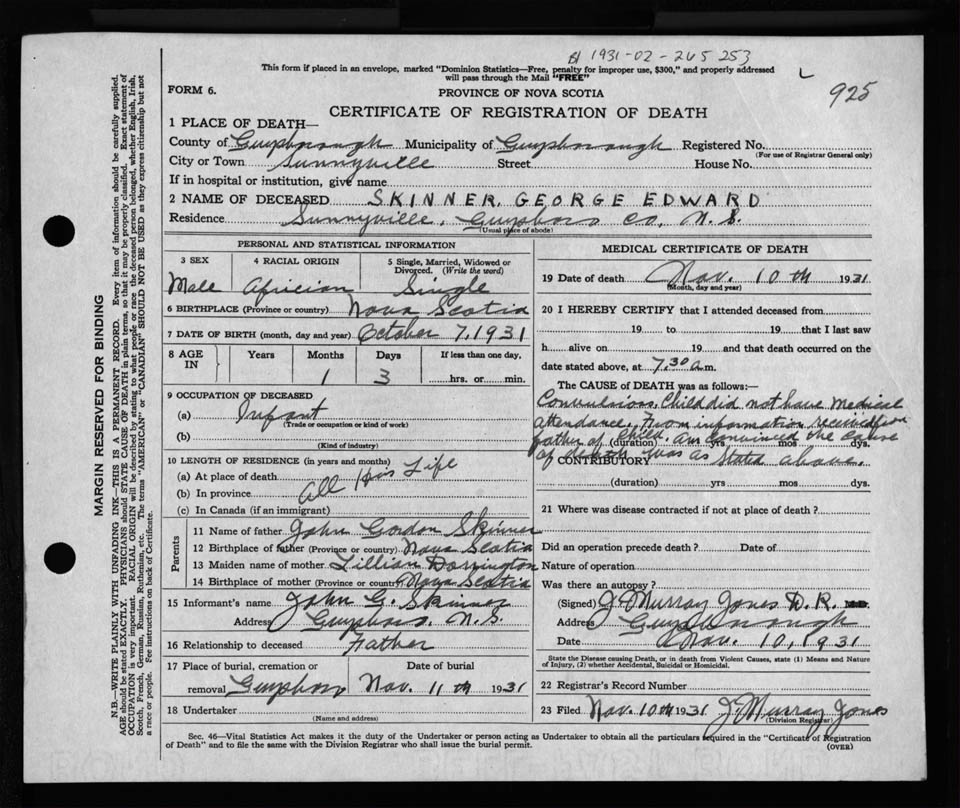 B 1931-02-265 253
This form if placed in an envelope, marked "Dominion Statistics—Free, penalty for improper use, $300," and properly addressed
will pass through the Mail "FREE"
925
FORM 6.
PROVINCE OF NOVA SCOTIA
CERTIFICATE OF REGISTRATION OF DEATH
1 PLACE OF DEATH—
County of Guysborough Municipality of Guysborough Registered No.
(For use of Registrar General only)
City or Town Sunnyville Street House No.
If in hospital or institution, give name
2 NAME OF DECEASED SKINNER, GEORGE EDWARD
Residence Sunnyville, Guysboro Co, N. S.
(Usual place of abode)
PERSONAL AND STATISTICAL INFORMATION
3 SEX 4 RACIAL ORIGIN 5 Single, Married, Widowed or
Divorced. (Write the word)
Male Africian Single
6 BIRTHPLACE (Province or country) Nova Scotia
7 DATE OF BIRTH (month, day and year) October 7, 1931
8 AGE IN Years Months Days If less than one day,
1 3 hrs. or min.
9 OCCUPATION OF DECEASED
(a) Infant
(Trade or occupation or kind of work)
(b)
(Kind of industry)
10 LENGTH OF RESIDENCE (in years and months)
(a) At place of death
(b) In province All His Life
(c) In Canada (if an immigrant)
Parents
11 Name of father John Gordon Skinner
12 Birthplace of father (Province or country) Nova Scotia
13 Maiden name of mother Lillian Dorrington
14 Birthplace of mother (Province or country) Nova Scotia
15 Informant's name John G. Skinner
Address Guysboro, N. S.
16 Relationship to deceased Father
17 Place of burial, cremation or Date of burial
removal Guysboro Nov. 11th 1931
18 Undertaker
(Name and address)
MEDICAL CERTIFICATE OF DEATH
19 Date of death Nov. 10th 1931
(Month, day and year)
20 I HEREBY CERTIFY that I attended deceased from
19 to 19 that I last saw
h alive on 19 and that death occurred on the
date stated above, at 7.30 a.m.
The CAUSE OF DEATH was as follows:
Convulsions. Child did not have medical
attendance. From information received from
father of child. am convinced the cause
(duration) yrs mos dys.
of death was as stated above.
CONTRIBUTORY
(duration) yrs mos dys.
21 Where was disease contracted if not at place of death?
Did an operation precede death? Date of
Nature of operation
Was there an autopsy?
(Signed) J Murray Jones D. R.
Address Guysborough
Date Nov. 10, 1931
State the Disease causing Death, or in death from Violent Causes, state (1) Means and Nature
of Injury, (2) whether Accidental, Suicidal or Homicidal.
22 Registrar's Record Number
23 Filed Nov. 10th 1931 J Murray Jones
(Division Registrar)
Sec. 46—Vital Statistics Act makes it the duty of the Undertaker or person acting as Undertaker to obtain all the particulars required in the "Certificate of Registration
of Death" and to file the same with the Division Registrar who shall issue the burial permit.
(OVER)
MARGIN RESERVED FOR BINDING
N.B.—WRITE PLAINLY WITH UNFADING INK—THIS IS A PERMANENT RECORD. Every item of information should be carefully supplied.
AGE should be stated EXACTLY. PHYSICIANS should STATE CAUSE OF DEATH in plain terms, so that it may be properly classified. Exact statement of
OCCUPATION is very important. RACIAL ORIGIN will be described by stating to what people or race the deceased person belonged, whether English, Irish,
Scotch, French, German, Russian, Ruthenian, etc. The terms "AMERICAN" or "CANADIAN" SHOULD NOT BE USED as they express citizenship but not
a race or people. Fee instructions on back of Certificate.